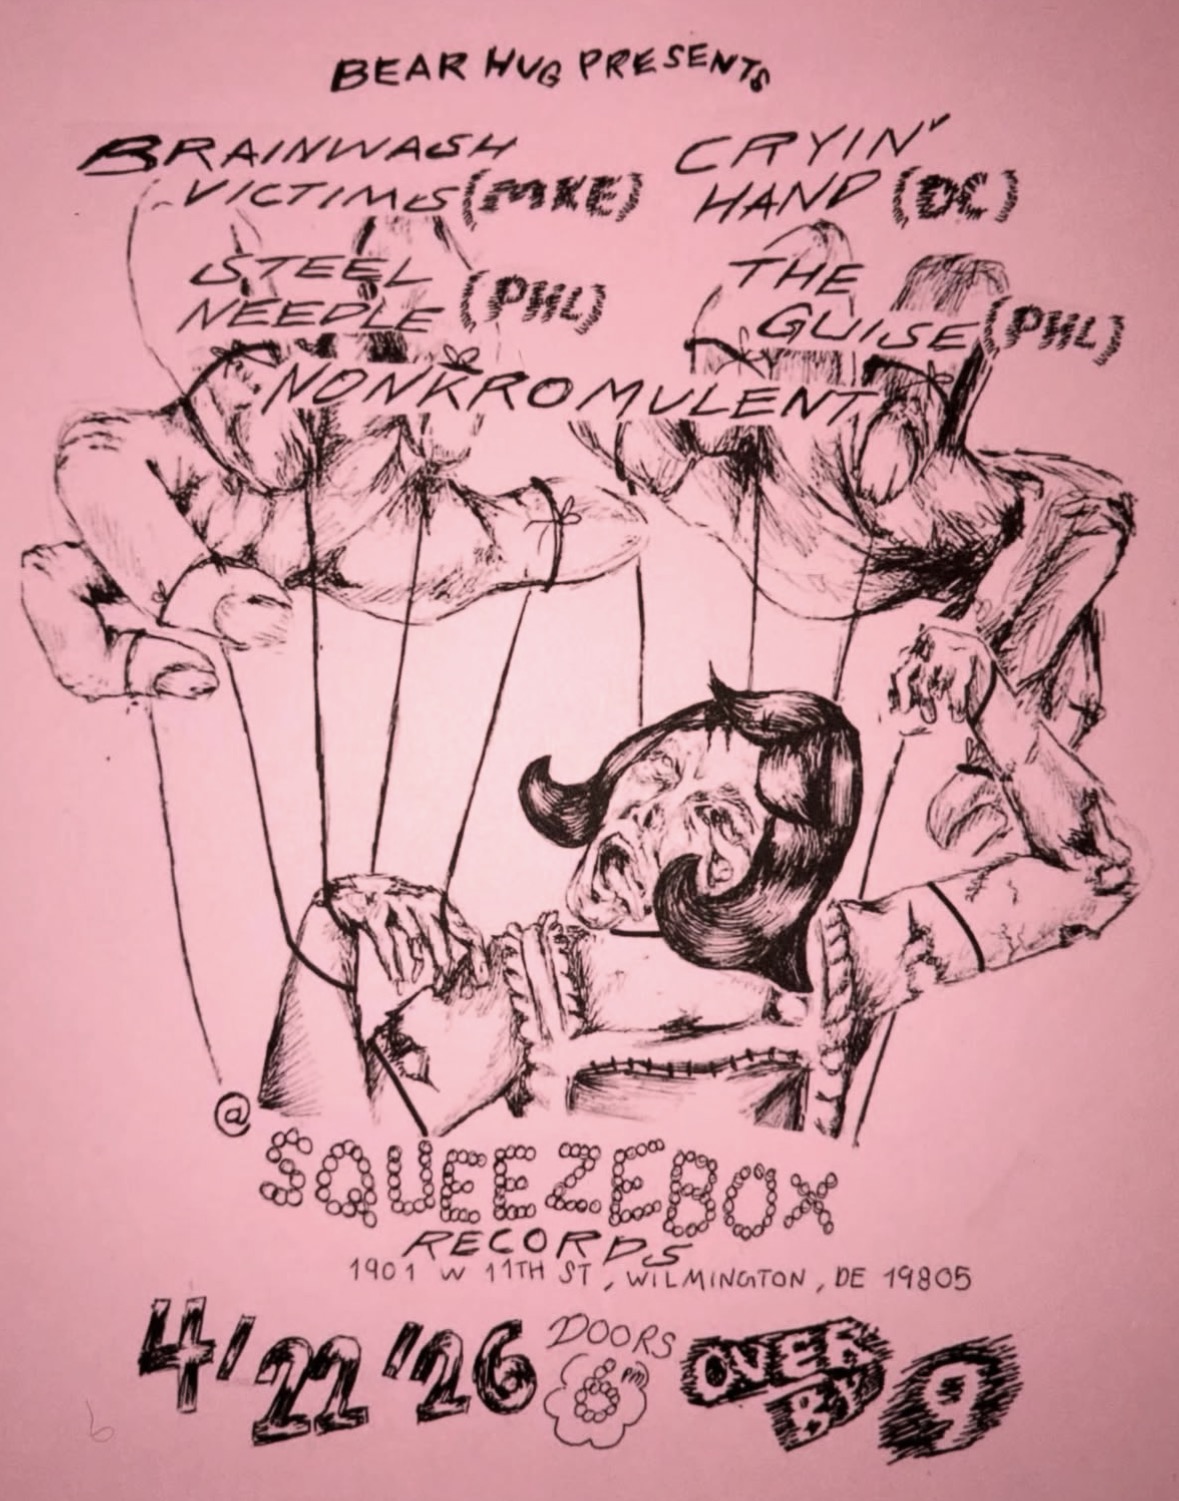 BEAR HUG PRESENTS
BRAINWASH
VICTIMS (MKE)
CRYIN'
HAND (DC)
STEEL
NEEDLE (PHL)
THE
GUISE (PHL)
NONKROMULENT
@
SQUEEZEBOX
RECORDS
1901 W 11TH ST, WILMINGTON, DE 19805
4/22/'26
DOORS
6 PM
OVER
BY 9